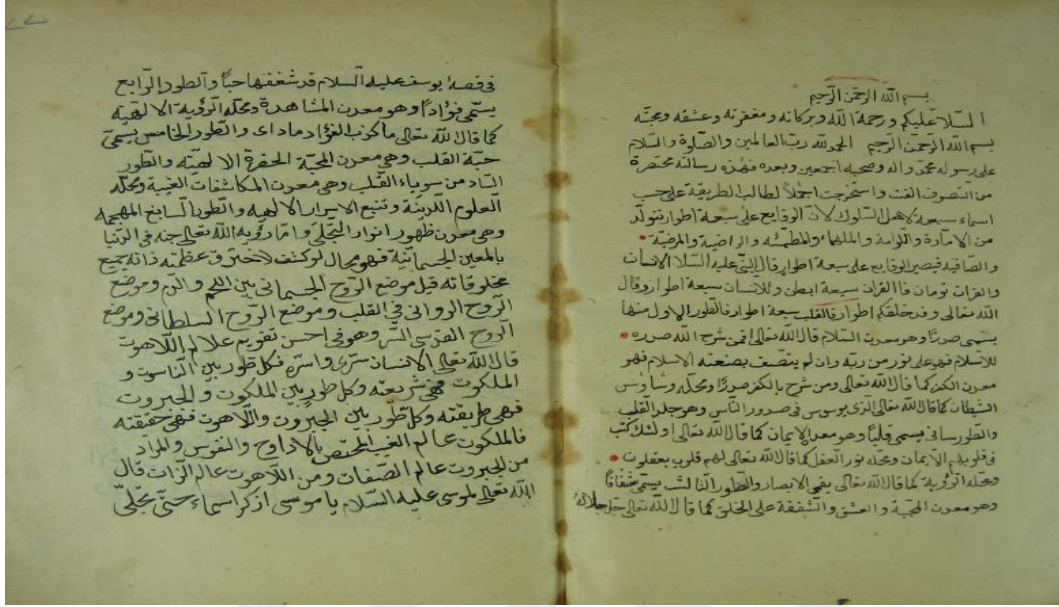 بسم الله الرحمن الرحيم
السلا عليكم ورحمة الله وبركاته ومغفرته وعشقه ومحبّته
بسم الله الرحمن الرحيم الحمد لله ربّ العالمين والصلوة والسلام
على رسوله محمّد واله وصحبه اجمعين وبعده فهذه رسالة مختصرة
من التصوف الفت واستخرجت اجملاً لطالب الطريقة على حسب
اسماء سبعة لاهل السلوك لانّ الوقايع على سبعة اطوار فتولّد
من الامّارة واللوامة والملهماء والمطمئنّه والراضية والمرضية
والصافيه فيصير الوقايع على سبعة اطوار قال النبيّ عليه السلا الانسان
والقران تومان فاالقران سبعة ابطن وللانسان سبعة اطوار وقال
الله تعالى وقد خلقكم اطوار فالقلب سبعة اطوار فالطور الاول منها
يسمى صدرًا وهو معدن السلام قال الله تعالى افمن شرح الله صدره
للاسلام فهو على نور من ربّه وان لم يتصف بصنعته الاسلام فهو
معدن الكفر كما قال الله تعالى ومن شرح بالكفر صدرًا ومحلّه وساوس
الشيطان كما قال الله تعالى الذى يوسوس فى صدور النّاس وهو جلد القلب
والطور سانى يسمى قلبًا وهو معدن الايمان كما قال الله تعالى اولئك كتب
فى قلوبهم الايمان ومحلّه نور العقل كما قال الله تعالى لهم قلوب يعقلون
ومحلّه الرؤية كما قال الله تعالى الابصار والطور الثالث يسمى شغفافًا
وهو معدن المحبّة والعشق والشفقة على الخلق كما قال الله تعالى جل جلاله
فى قصة يوسف عليه السلام قد شغفها حبًّا والطور الرابع
يسمّى فؤادًا وهو معدن المشاهدة ومحلّه الرؤية الالهيّة
كما قال الله تعالى ما كذب الفؤاد ما داى والطور الخامس يسمّى
حبّة القلب وهى معدن المحبّة الحضرة الالهيّة والطور
الساد من سوياء القلب وهى معدن المكاشفات الغيبة ومحلّه
العلوم اللدنيّة ومنبع الاسرار الالهية والطور السابع المهجمة
وهى معدن ظهور انوار التجلّى وامّا رؤية الله تعالى جنه فى الدّنيا
بالمعين الجسمانيّة فهو محال لو كشف لاحترق عظمته ذاته جميع
مخلوقاته قيل موضع الرّوح الجسمانى بين اللحم والدّم وموضع
الرّوح الروانى فى القلب وموضع الرّوح السلطانى وموضع
الروح القدسى السّر وهو فى احسن تقويم علا لم اللاهوت
قال الله تعالى الانسان سرّى واسرّه فكل طور بين الناسوت و
الملكوت فهى شريعته وكل طور بين الملكوت والجبروت
فهى طريقته وكل طور بين الجبروت واللاهوت فهى حقيقته
فالملكوت عالم الغيب المختص بالاداوح والنفوس والمراد
من الجبروت عالم الصّفات ومن اللاهوت عالم الذات قال
الله تعالى لموسى عليه السّلام يا موسى اذكر اسماء حتّى تجلّى